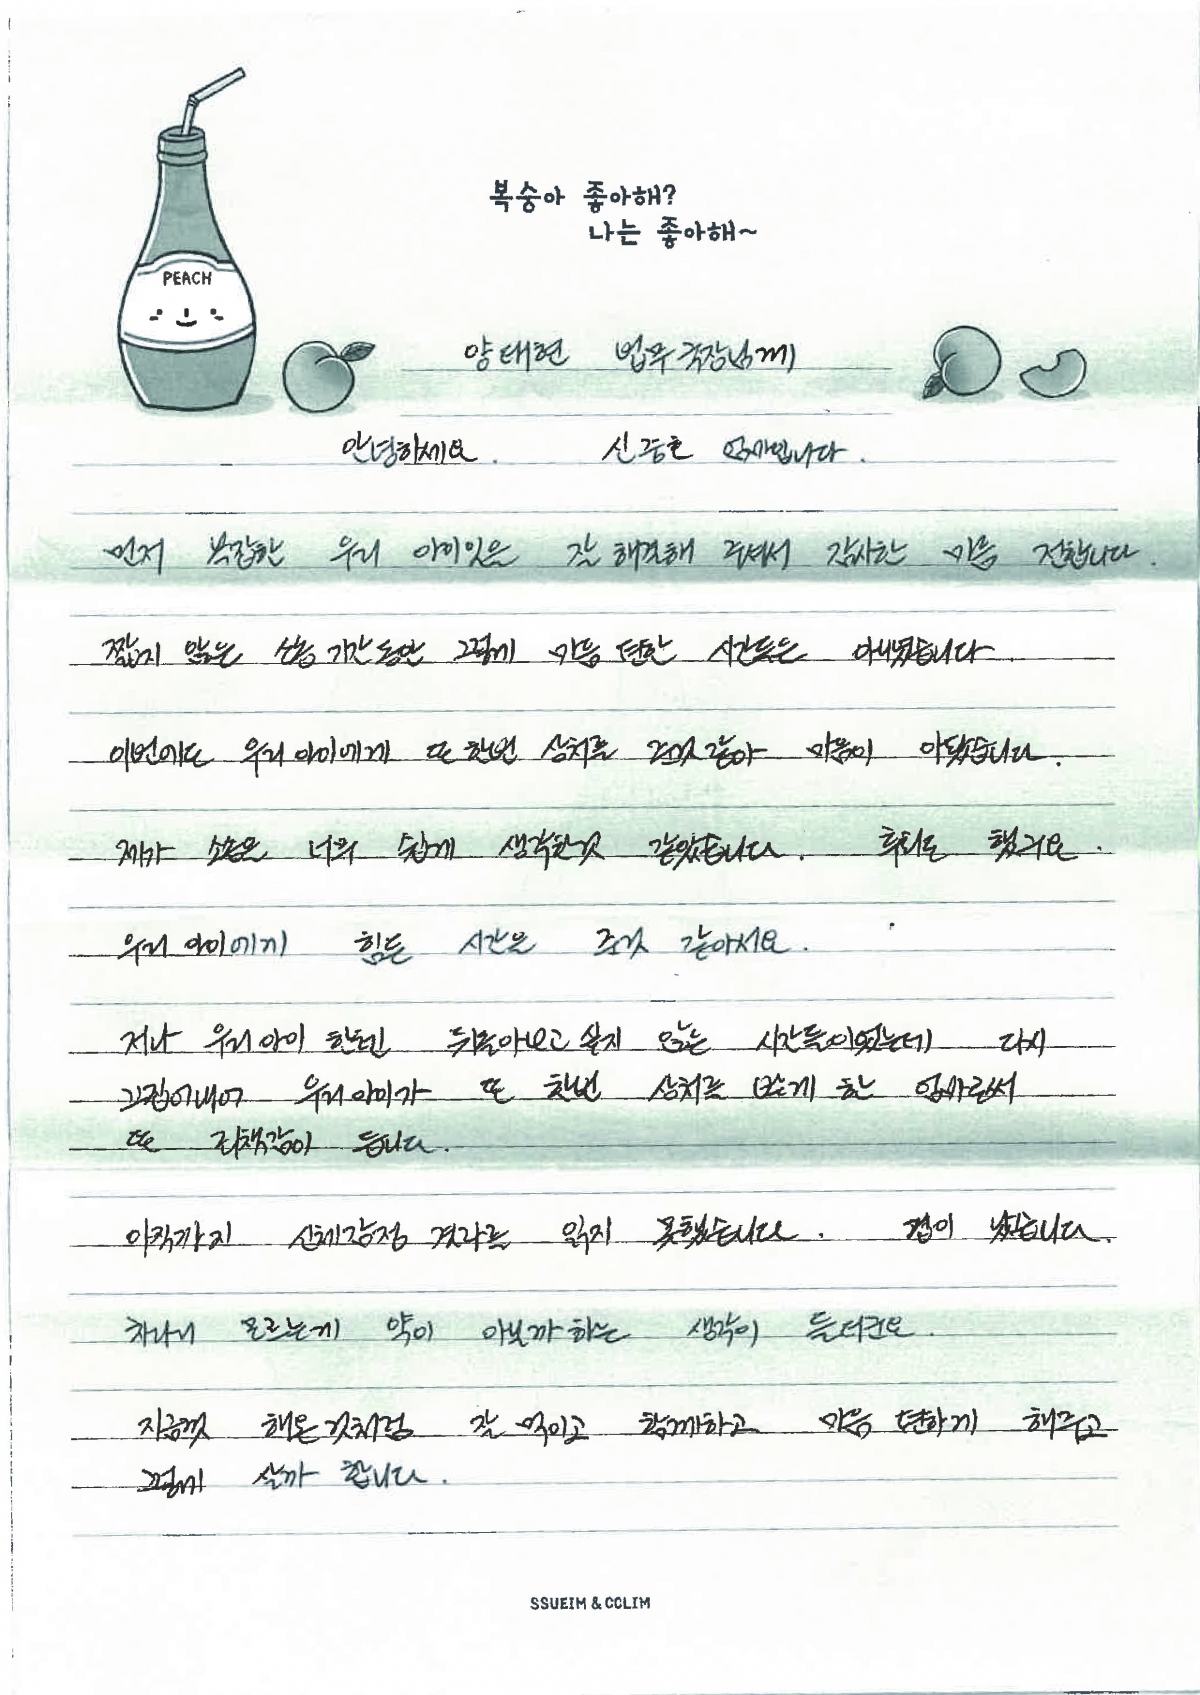 복숭아 좋아해?
나는 좋아해~
PEACH
양태현 법무국장님께
안녕하세요. 신동호 엄마입니다.
먼저 복잡한 우리 아이일을 잘 해결해 주셔서 감사한 마음 전합니다.
짧지 않은 소송 기간동안 그렇게 마음 편한 시간들은 아니었습니다.
이번에도 우리아이에게 또 한번 상처를 준것 같아 마음이 아팠습니다.
제가 소송을 너무 쉽게 생각한것 같았습니다. 후회도 했구요.
우리 아이에게 힘든 시간을 준것 같아서요.
저나 우리아이 한텐 뒤돌아보고 싶지 않은 시간들이었는데 다시
끄집어내어 우리아이가 또 한번 상처를 받게 한 엄마로써
또 죄책감이 듭니다.
아직까지 신체감정 결과를 읽지 못했습니다. 겁이 났습니다.
차라리 모르는게 약이 아닐까하는 생각이 들더군요.
지금껏 해온것처럼 잘 먹이고 함께하고 마음 편하게 해주고
그렇게 살까 합니다.
SSUEIM & CCLIM